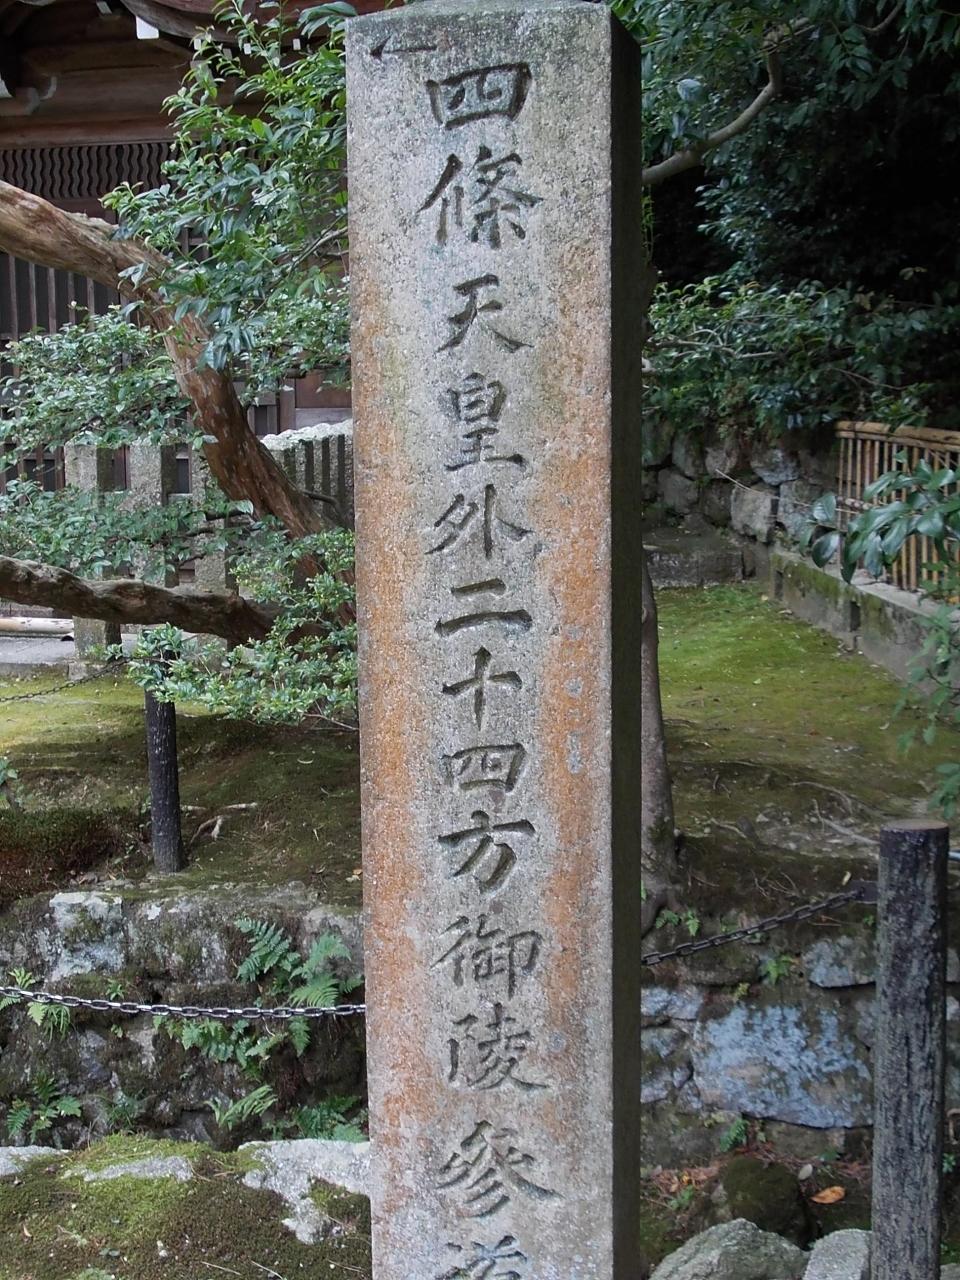 四條天皇外二十四方御陵參道